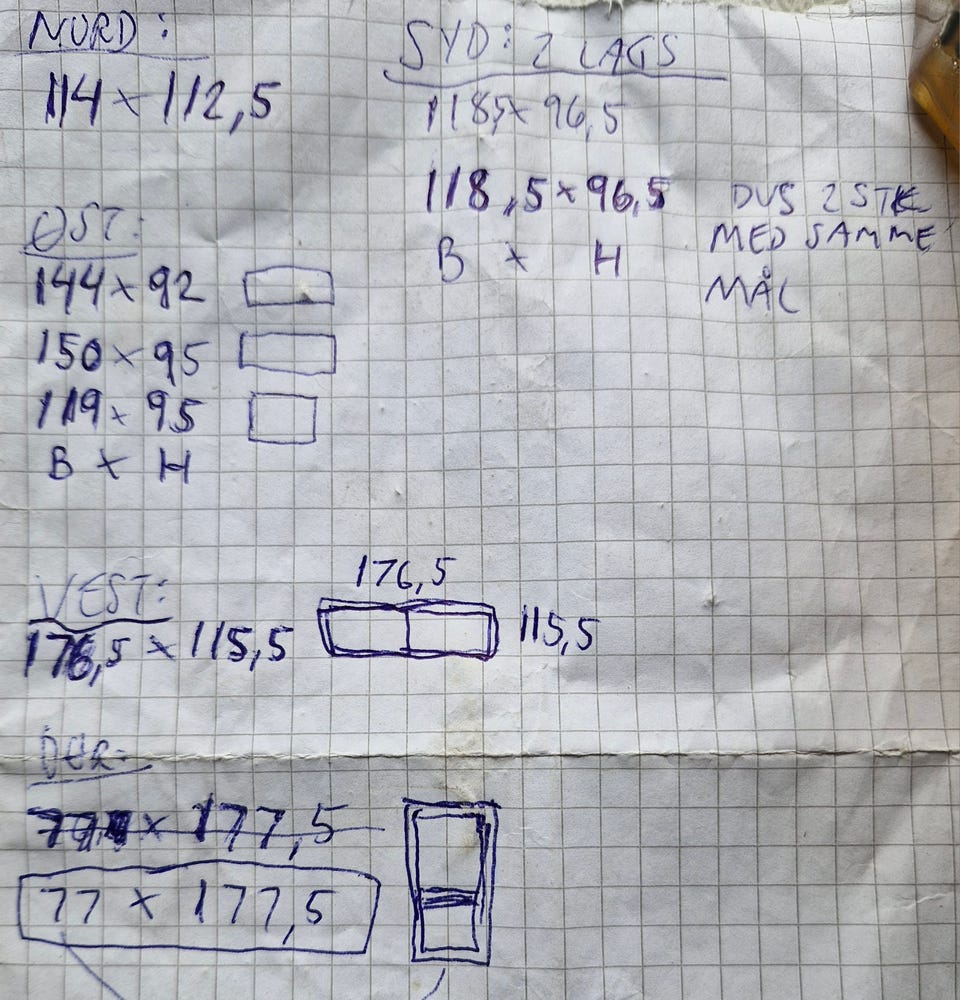 NORD:
114 x 112,5
SYD: 2 LAGS
118,5 x 96,5
118,5 x 96,5
B x H
DVS 2 STK
MED SAMME
MÅL
ØST:
144 x 92
150 x 95
119 x 95
B x H
VEST:
176,5 x 115,5
176,5
115,5
DØR:
x 177,5
77 x 177,5